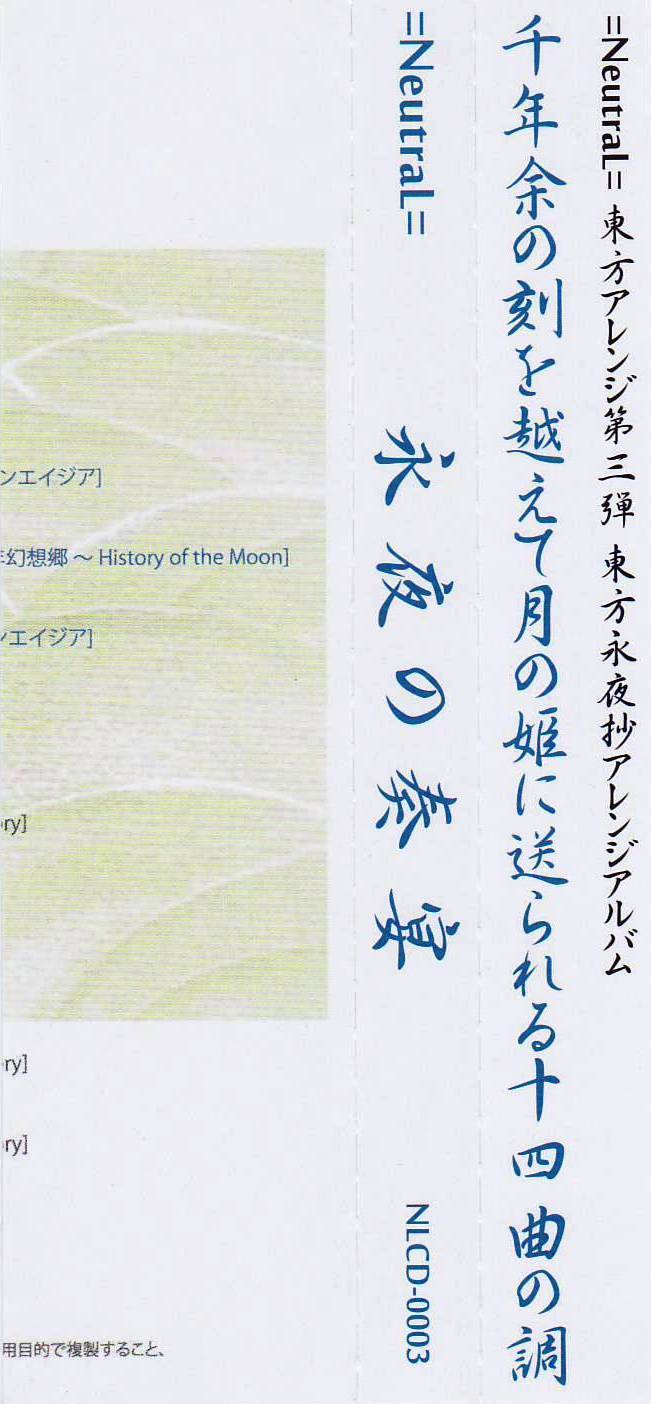 =NeutraL= 東方アレンジ第三弾 東方永夜抄アレンジアルバム
千年余の刻を越えて月の姫に送られる十四曲の調
=NeutraL= 永夜の奏宴 NLCD-0003
ンエイジア]
幻想郷 ～ History of the Moon]
ンエイジア]
ry]
ry]
ry]
用目的で複製すること、